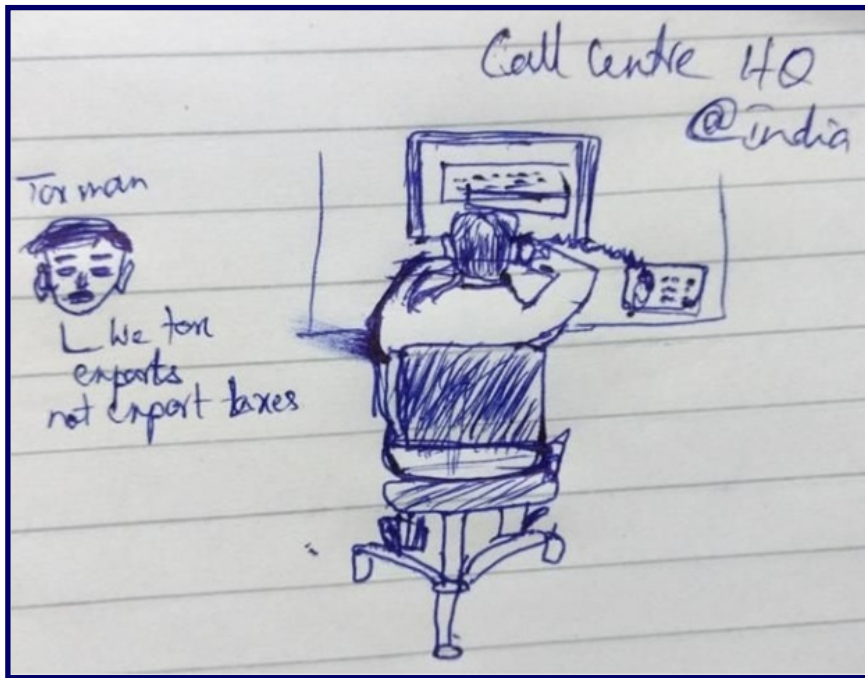 Call Centre HQ
@india
Taxman
We tax
exports
not export taxes